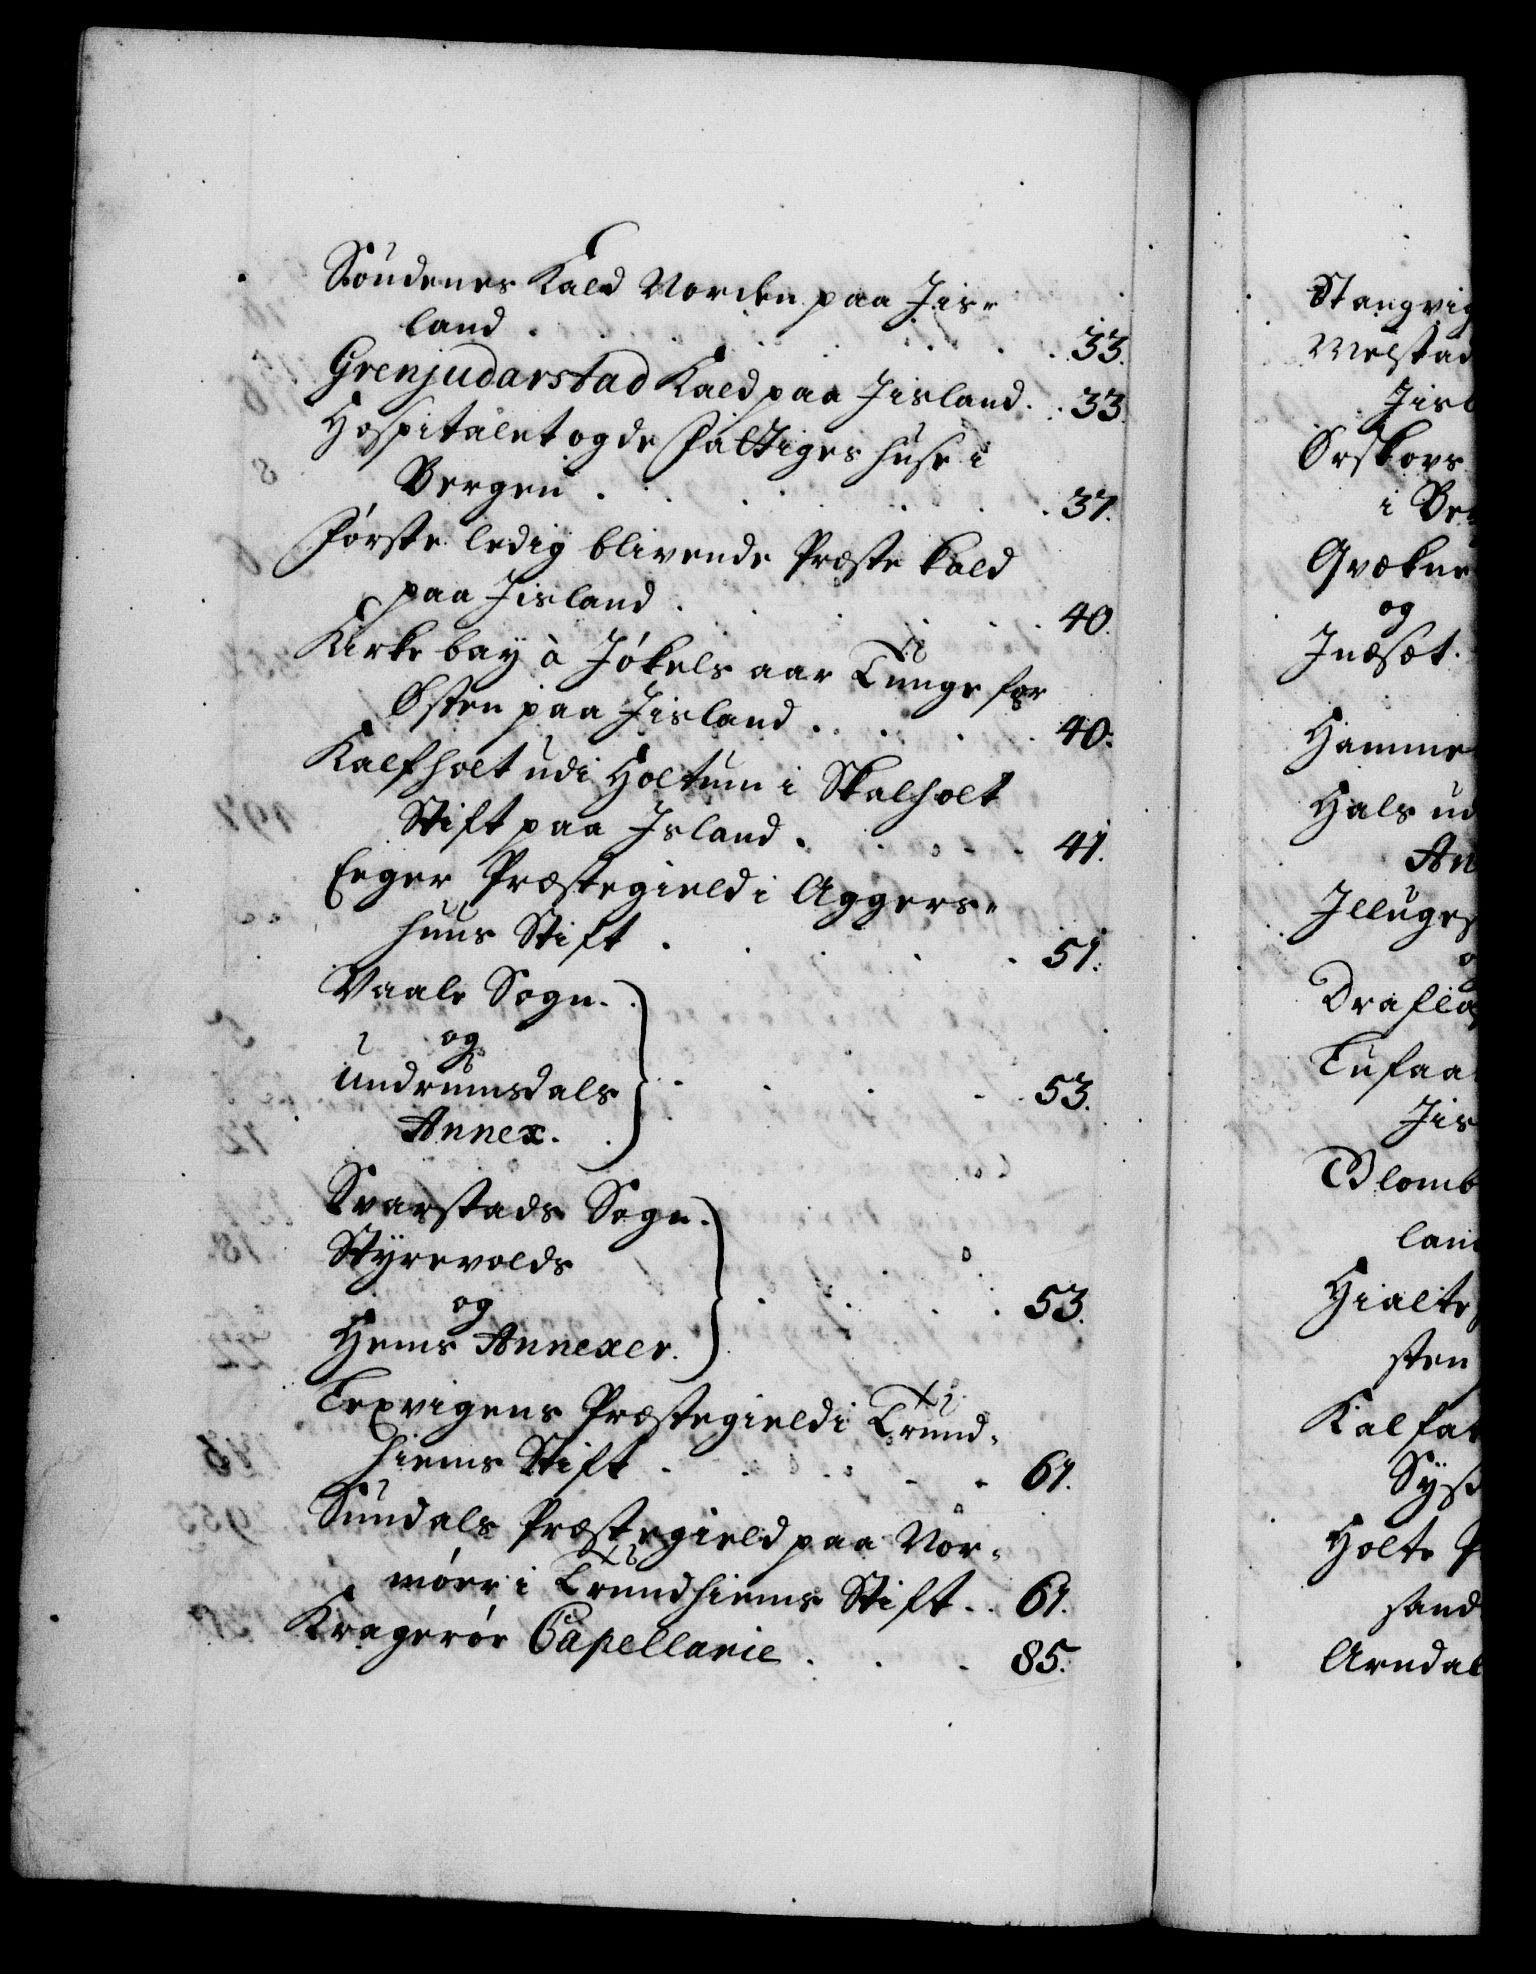 Soudenes Kald Norden paa Jis-
land . . . . . . 33.
Grenjudarstad Kald paa Jisland. . 33.
Hospitalet og de fattiges huse i
Bergen . . . . . . 37.
første ledig blivende Præste kald
paa Jisland . . . . . 40.
Kirkebay à Jøkels aar Tunge for
Østen paa Jisland . . . . 40.
Kalfholt udi Holtum i Skalholt
Stift paa Island . . . . 41.
Eeger Præstegield i Aggers-
huus Stift . . . . . 51.
Vaale Sogn.
og
Undrumsdals . . . . 53.
Annex.
Svarstads Sogn.
Styrevolds
og . . . . 53.
Hems Annexer.
Lexvigens Præstegield i Trund-
hiems Stift . . . . . 61.
Sundals Præstegield paa Nor-
møer i Trundhiems Stift . . 61.
Kragerøe Capellanie . . . 85.
Stangvig
Melstad
Jisl
Ørskovs
i Ber
Qvækne
og
Inæset.
Hamme
Hals ud
An
Illuges
Drafla
Tufaa
Jis
Blomb
land
Hialte
sten
Kalfa
Syss
Holte P
sand
Arndal